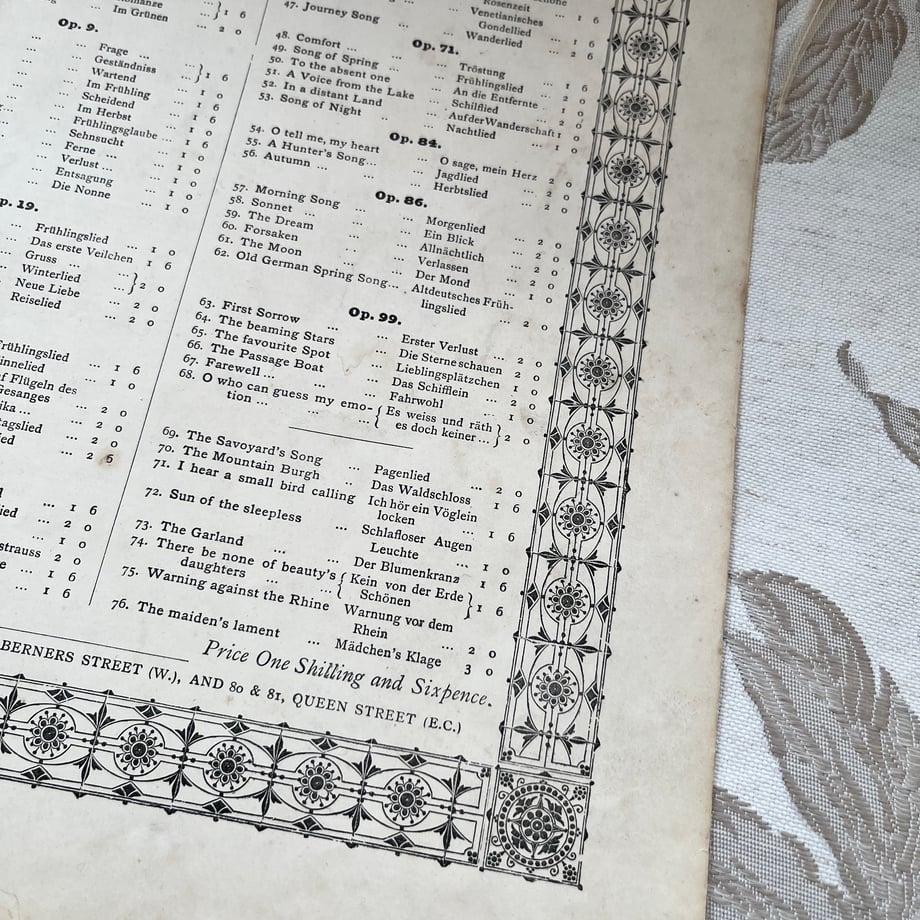 Romanze
Im Grünen ... }1 6
... 2 0
Op. 9.
... Frage ...
... Geständniss
... Wartend ... }1 6
... Im Frühling ... 1 0
... Scheidend ... 1 0
... Im Herbst ... 1 0
... Frühlingsglaube ... 1 6
... Sehnsucht ... 1 0
... Ferne ... ... 1 0
... Verlust ... ... 1 0
... Entsagung ... 1 0
... Die Nonne ... 1 0
p. 19.
... Frühlingslied ... 1 0
... Das erste Veilchen 1 6
... Gruss ...
... Winterlied ... }2 0
... Neue Liebe ... 2 0
... Reiselied ... 2 0
rühlingslied ... 1 6
innelied ... 1 0
f Flügeln des
Gesanges ... 2 0
ika ... ... 2 0
tagslied ... 2 0
ied ... 2 6
... 1 6
ied ... 2 0
... 1 0
strauss 2 0
e ... 1 6
... 1 6
47. Journey Song ... Rosenzeit ...
Venetianisches
Gondellied ... 1 6
Wanderlied ... 2 6
Op. 71.
48. Comfort ... ... Tröstung ... 1 6
49. Song of Spring ... Frühlingslied ... 2 0
50. To the absent one ... An die Entfernte ... 1 0
51. A Voice from the Lake ... Schilflied ... 2 0
52. In a distant Land ... Auf der Wanderschaft 1 0
53. Song of Night ... Nachtlied ... 1 0
Op. 84.
54. O tell me, my heart ... O sage, mein Herz 2 0
55. A Hunter's Song... ... Jagdlied ... 2 0
56. Autumn ... ... Herbtslied ... 2 0
Op. 86.
57. Morning Song ... Morgenlied ... 2 0
58. Sonnet ... ... Ein Blick ... 2 0
59. The Dream ... Allnächtlich ... 2 0
60. Forsaken ... Verlassen ... 2 0
61. The Moon ... Der Mond ... 1 0
62. Old German Spring Song... Altdeutsches Früh-
lingslied ... 2 0
Op. 99.
63. First Sorrow ... Erster Verlust ... 2 0
64. The beaming Stars ... Die Sterne schauen 2 0
65. The favourite Spot ... Lieblingsplätzchen 1 0
66. The Passage Boat ... Das Schifflein ... 2 0
67. Farewell ... ... Fahrwohl ... 1 0
68. O who can guess my emo- { Es weiss und räth }
tion ... ... { es doch keiner ... } 2 0
69. The Savoyard's Song ... Pagenlied ... 2 0
70. The Mountain Burgh ... Das Waldschloss 1 6
71. I hear a small bird calling Ich hör ein Vöglein
locken ... 1 6
72. Sun of the sleepless ... Schlafloser Augen
Leuchte ... 1 0
73. The Garland ... ... Der Blumenkranz 1 6
74. There be none of beauty's { Kein von der Erde }
daughters ... ... { Schönen ... } 1 6
75. Warning against the Rhine Warnung vor dem
Rhein ... 2 0
76. The maiden's lament ... Mädchen's Klage 3 0
Price One Shilling and Sixpence.
BERNERS STREET (W.), AND 80 & 81, QUEEN STREET (E.C.)